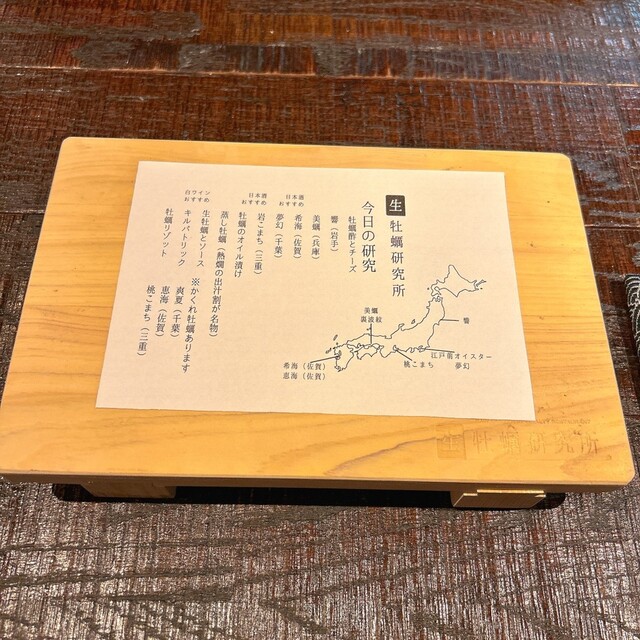 生 牡蠣研究所
今日の研究
牡蠣酢とチーズ
響（岩手）
美蠣（兵庫）
希海（佐賀）
夢幻（千葉）
日本酒
おすすめ
岩こまち（三重）
牡蠣のオイル漬け
日本酒
おすすめ
蒸し牡蠣（熱燗の出汁割が名物）
生牡蠣とソース ※かくれ牡蠣あります
キルパトリック 爽夏（千葉）
恵海（佐賀）
白ワイン
おすすめ
牡蠣リゾット 桃こまち（三重）
美蠣
裏波紋
響
江戸前オイスター
夢幻
桃こまち
希海（佐賀）
恵海（佐賀）
生 牡蠣研究所